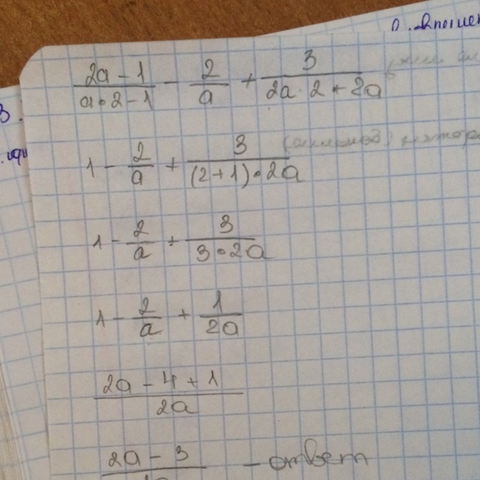 (2a - 1)/(a·2 - 1) - 2/a + 3/(2a·2 + 2a)
1 - 2/a + 3/((2+1)·2a)
1 - 2/a + 3/(3·2a)
1 - 2/a + 1/(2a)
(2a - 4 + 1)/(2a)
2a - 3 - ответ